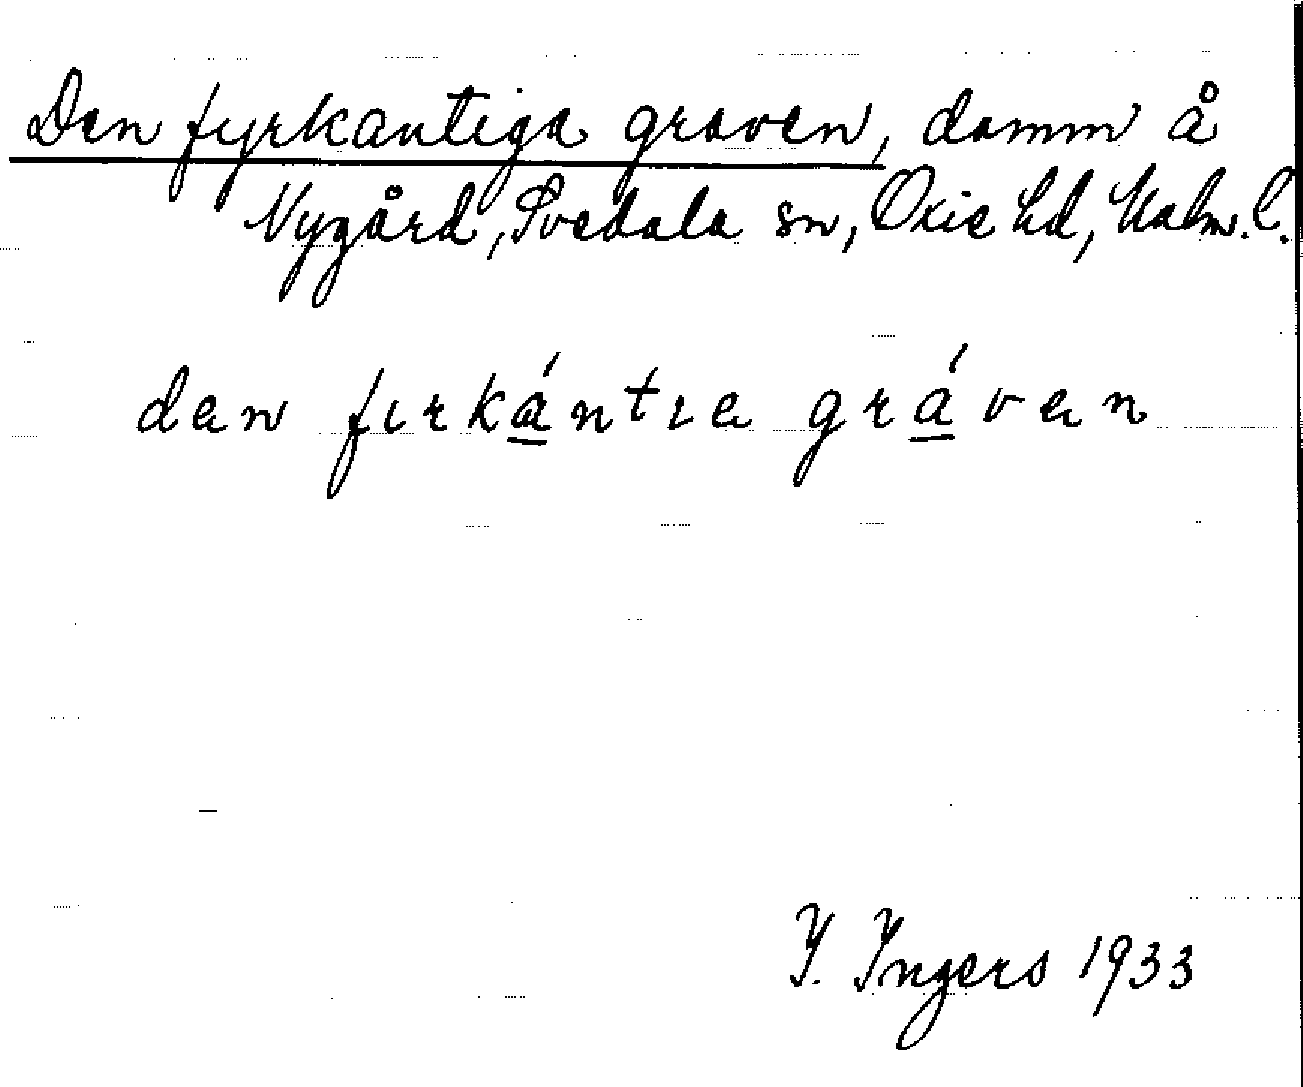 Den fyrkantiga graven, damm å
Nygård, Svedala sn, Oxie hd, Malm. l.
den fırkántıa gráven
I. Ingers 1933